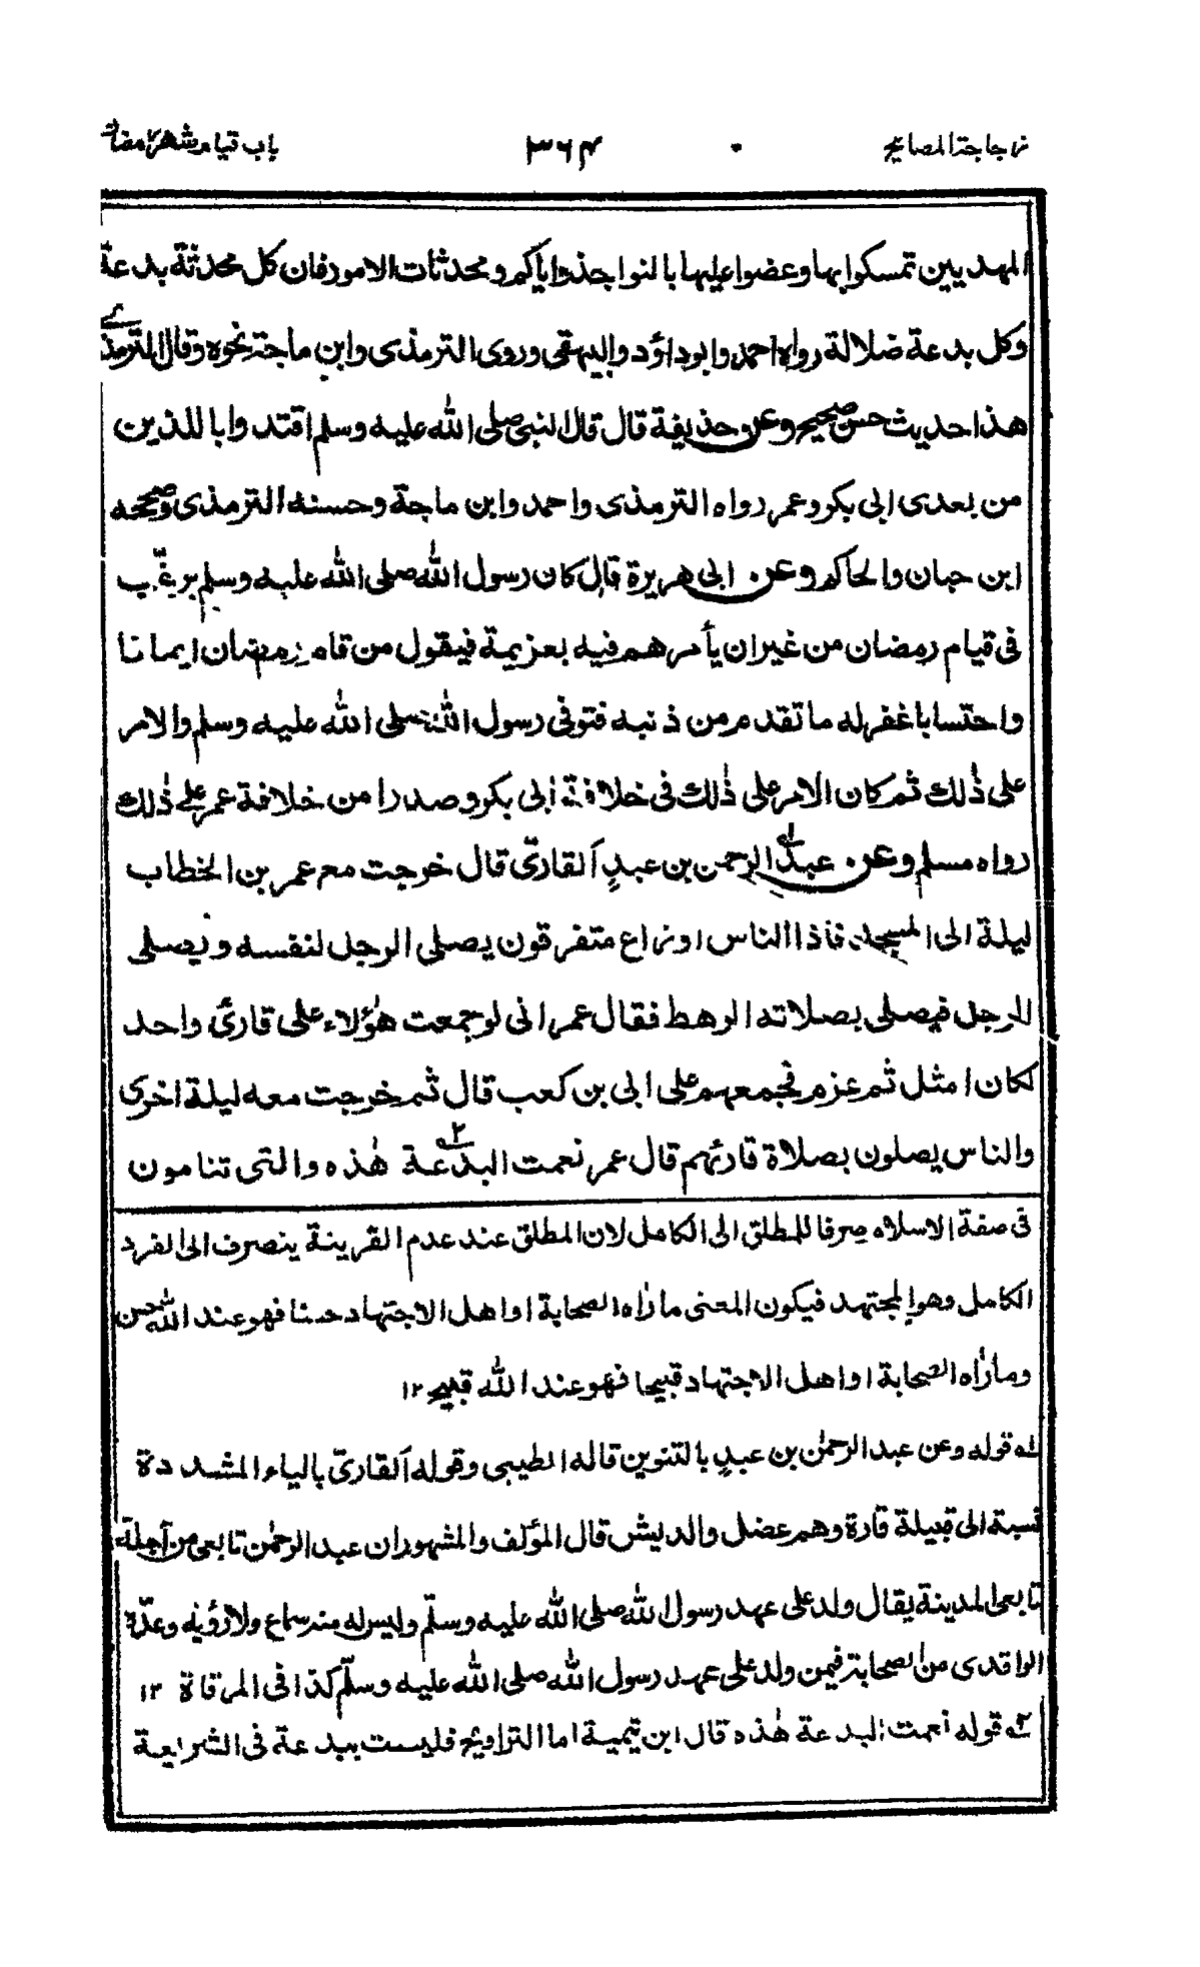 زجاجة المصابيح ٣٦٤ باب قيام شهر رمضان
المهديين تمسكوا بها وعضوا عليها بالنواجذ واياكم ومحدثات الامور فان كل محدثة بدعة
وكل بدعة ضلالة رواه احمد وابو داؤد والبيهقى وروى الترمذى وابن ماجة نحوه وقال الترمذى
هذا حديث حسن صحيح وعن حذيفة قال قال النبى صلى الله عليه وسلم اقتدوا بالذين
من بعدى ابى بكر وعمر رواه الترمذى واحمد وابن ماجة وحسنه الترمذى وصححه
ابن حبان والحاكم وعن ابى هريرة قال كان رسول الله صلى الله عليه وسلم يرغّب
فى قيام رمضان من غير ان يأمرهم فيه بعزيمة فيقول من قام رمضان ايمانا
واحتسابا غفر له ما تقدم من ذنبه فتوفى رسول الله صلى الله عليه وسلم والامر
على ذٰلك ثم كان الامر على ذٰلك فى خلافة ابى بكر وصدرا من خلافة عمر على ذٰلك
رواه مسلم وعن عبد الرحمن بن عبدٍ القاريّ قال خرجت مع عمر بن الخطاب
ليلة الى المسجد فاذا الناس اوزاع متفرقون يصلى الرجل لنفسه ويصلى
الرجل فيصلى بصلاته الرهط فقال عمر انى لو جمعت هٰؤلاء على قارئ واحد
لكان امثل ثم عزم فجمعهم على ابى بن كعب قال ثم خرجت معه ليلة اخرى
والناس يصلون بصلاة قارئهم قال عمر نعمت البدعة ٢ هٰذه والتى تنامون
فى صفة الاسلام صرفا للمطلق الى الكامل لان المطلق عند عدم القرينة ينصرف الى الفرد
الكامل وهو المجتهد فيكون المعنى ما رآه الصحابة او اهل الاجتهاد حسنا فهو عند الله حسن
وما رآه الصحابة او اهل الاجتهاد قبيحا فهو عند الله قبيح ١٢
له قوله وعن عبد الرحمٰن بن عبدٍ بالتنوين قاله الطيبى وقوله القاريّ بالياء المشددة
نسبة الى قبيلة قارة وهم عضل والديش قال المؤلف والمشهور ان عبد الرحمٰن تابعى من اجلة
تابعى المدينة يقال ولد على عهد رسول الله صلى الله عليه وسلّم وليس له منه سماع ولا رؤية وعدّه
الواقدى من الصحابة فيمن ولد على عهد رسول الله صلى الله عليه وسلّم كذا فى المرقاة ١٢
٢ه قوله نعمت البدعة هٰذه قال ابن تيمية اما التراويح فليست ببدعة فى الشريعة